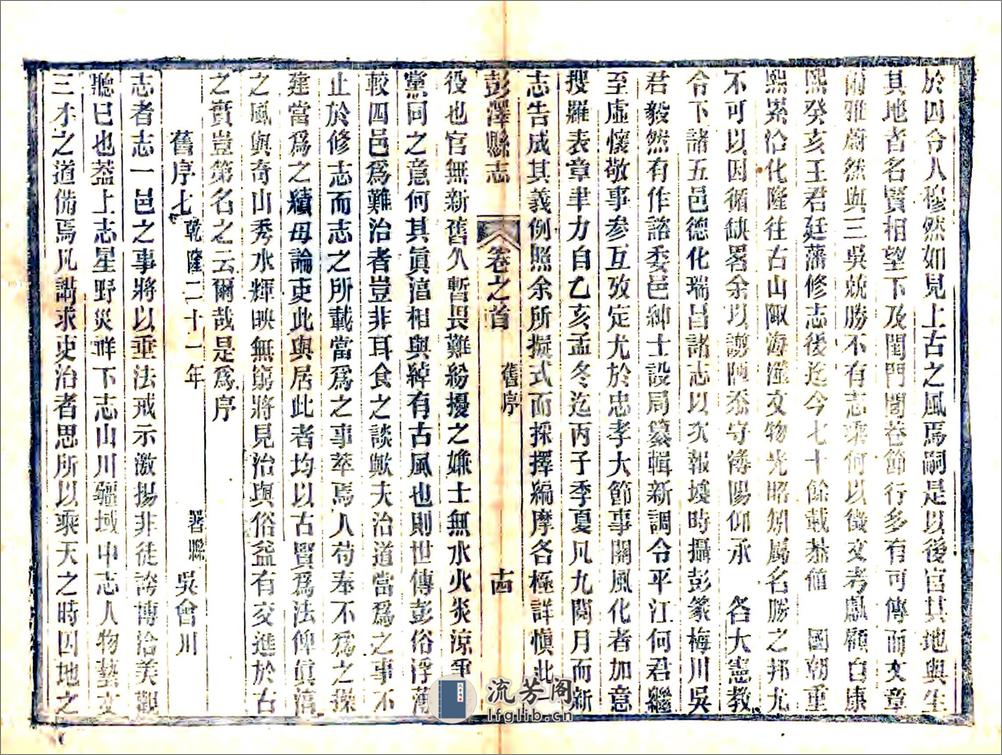 於四令人穆然如見上古之風焉嗣是以後官其地與生
其地者名賢相望下及閨門閭巷節行多有可傳而文章
爾雅蔚然與三吳競勝不有志乘何以徵文考獻顧自康
熙癸亥王君廷藩修志後迄今七十餘載恭値　國朝重
熙累洽化隆往古山陬海澨文物光昭矧屬名勝之邦尤
不可以因循缺畧余以謭陋忝守潯陽仰承　各大憲敎
令下諸五邑德化瑞昌諸志以次報竣時攝彭篆梅川吳
君毅然有作諮委邑紳士設局纂輯新調令平江何君繼
至虛懷敬事參互攷定尤於忠孝大節事關風化者加意
搜羅表章聿力自乙亥孟冬迄丙子季夏凡九閱月而新
志告成其義例照余所擬式而採擇編摩各極詳愼此
彭澤縣志　卷之首　舊序　十四
役也官無新舊久暫畏難紛擾之嫌士無水火炎涼
黨同之意何其眞湻相與綽有古風也則世傳彭俗浮薄
較四邑爲難治者豈非耳食之談歟夫治道當爲之事不
止於修志而志之所載當爲之事萃焉人苟奉不爲之操
建當爲之績毋論吏此與居此者均以古賢爲法俾眞湻
之風與奇山秀水輝映無窮將見治與俗益有交進於古
之實豈第名之云爾哉是爲序
舊序七 乾隆二十一年　署縣 吳會川
志者志一邑之事將以垂法戒示激揚非徒誇博洽美觀
聽已也葢上志星野災祥下志山川疆域中志人物藝文
三才之道備焉凡講求吏治者思所以乘天之時因地之
流芳阁
lfglib.cn